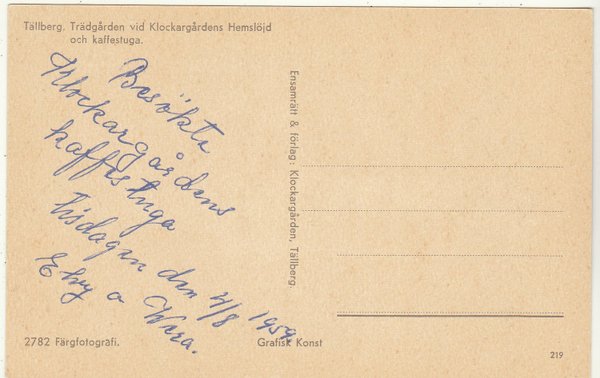 Tällberg. Trädgården vid Klockargårdens Hemslöjd
och kaffestuga.
Besökte
Klockargårdens
kaffestuga
tisdagen den 4/8 1959.
Elvy o Wera.
Ensamrätt & förlag: Klockargården, Tällberg.
2782 Färgfotografi.
Grafisk Konst
219